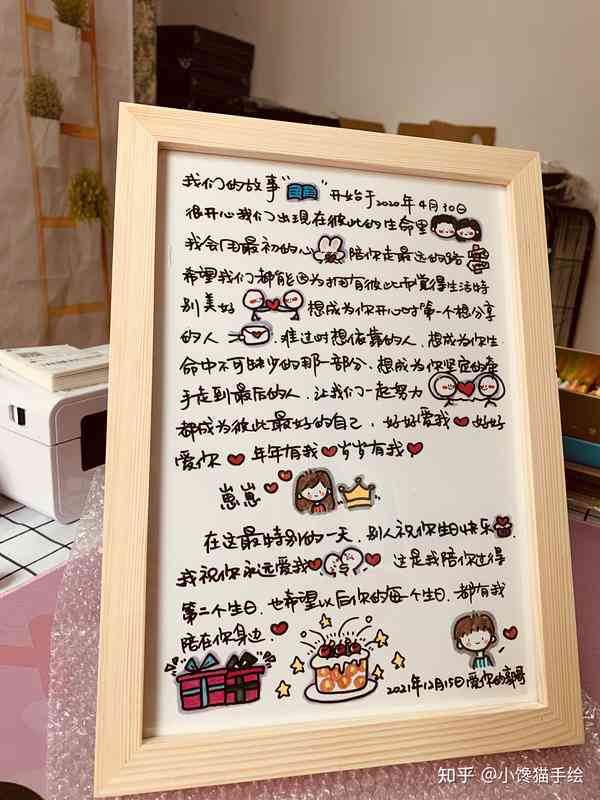 我们的故事“ ”开始于2020年4月10日
很开心我们出现在彼此的生命里
我会用最初的心 陪你走最远的路
希望我们都能因为拥有彼此而觉得生活特
别美好 想成为你开心时第一个想分享
的人 难过时想依靠的人、想成为你生
命中不可缺少的那一部分、想成为你坚定的牵
手走到最后的人、让我们一起努力
都成为彼此最好的自己,好好爱我 好好
爱你 年年有我 岁岁有我
崽崽
在这最特别的一天,别人祝你生日快乐
我祝你永远爱我 这是我陪你过得
第二个生日,也希望以后你的每一个生日,都有我
陪在你身边
2021年12月15日爱你的
知乎 @小馋猫手绘